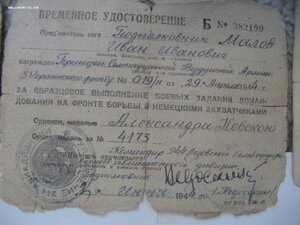 ВРЕМЕННОЕ УДОСТОВЕРЕНИЕ Б № 382199
Предъявитель сего Подполковник Малов
Иван Иванович
награжден Приказом Командующего Воздушной Армии
3 Украинского фронта № 019/н от 29 Апреля 1944 г.
ЗА ОБРАЗЦОВОЕ ВЫПОЛНЕНИЕ БОЕВЫХ ЗАДАНИЙ КОМАН-
ДОВАНИЯ НА ФРОНТЕ БОРЬБЫ С НЕМЕЦКИМИ ЗАХВАТЧИКАМИ
Орденом, медалью Александра Невского
Орден за № 4173
Командир 244
авиационной дивизии
1944 г.